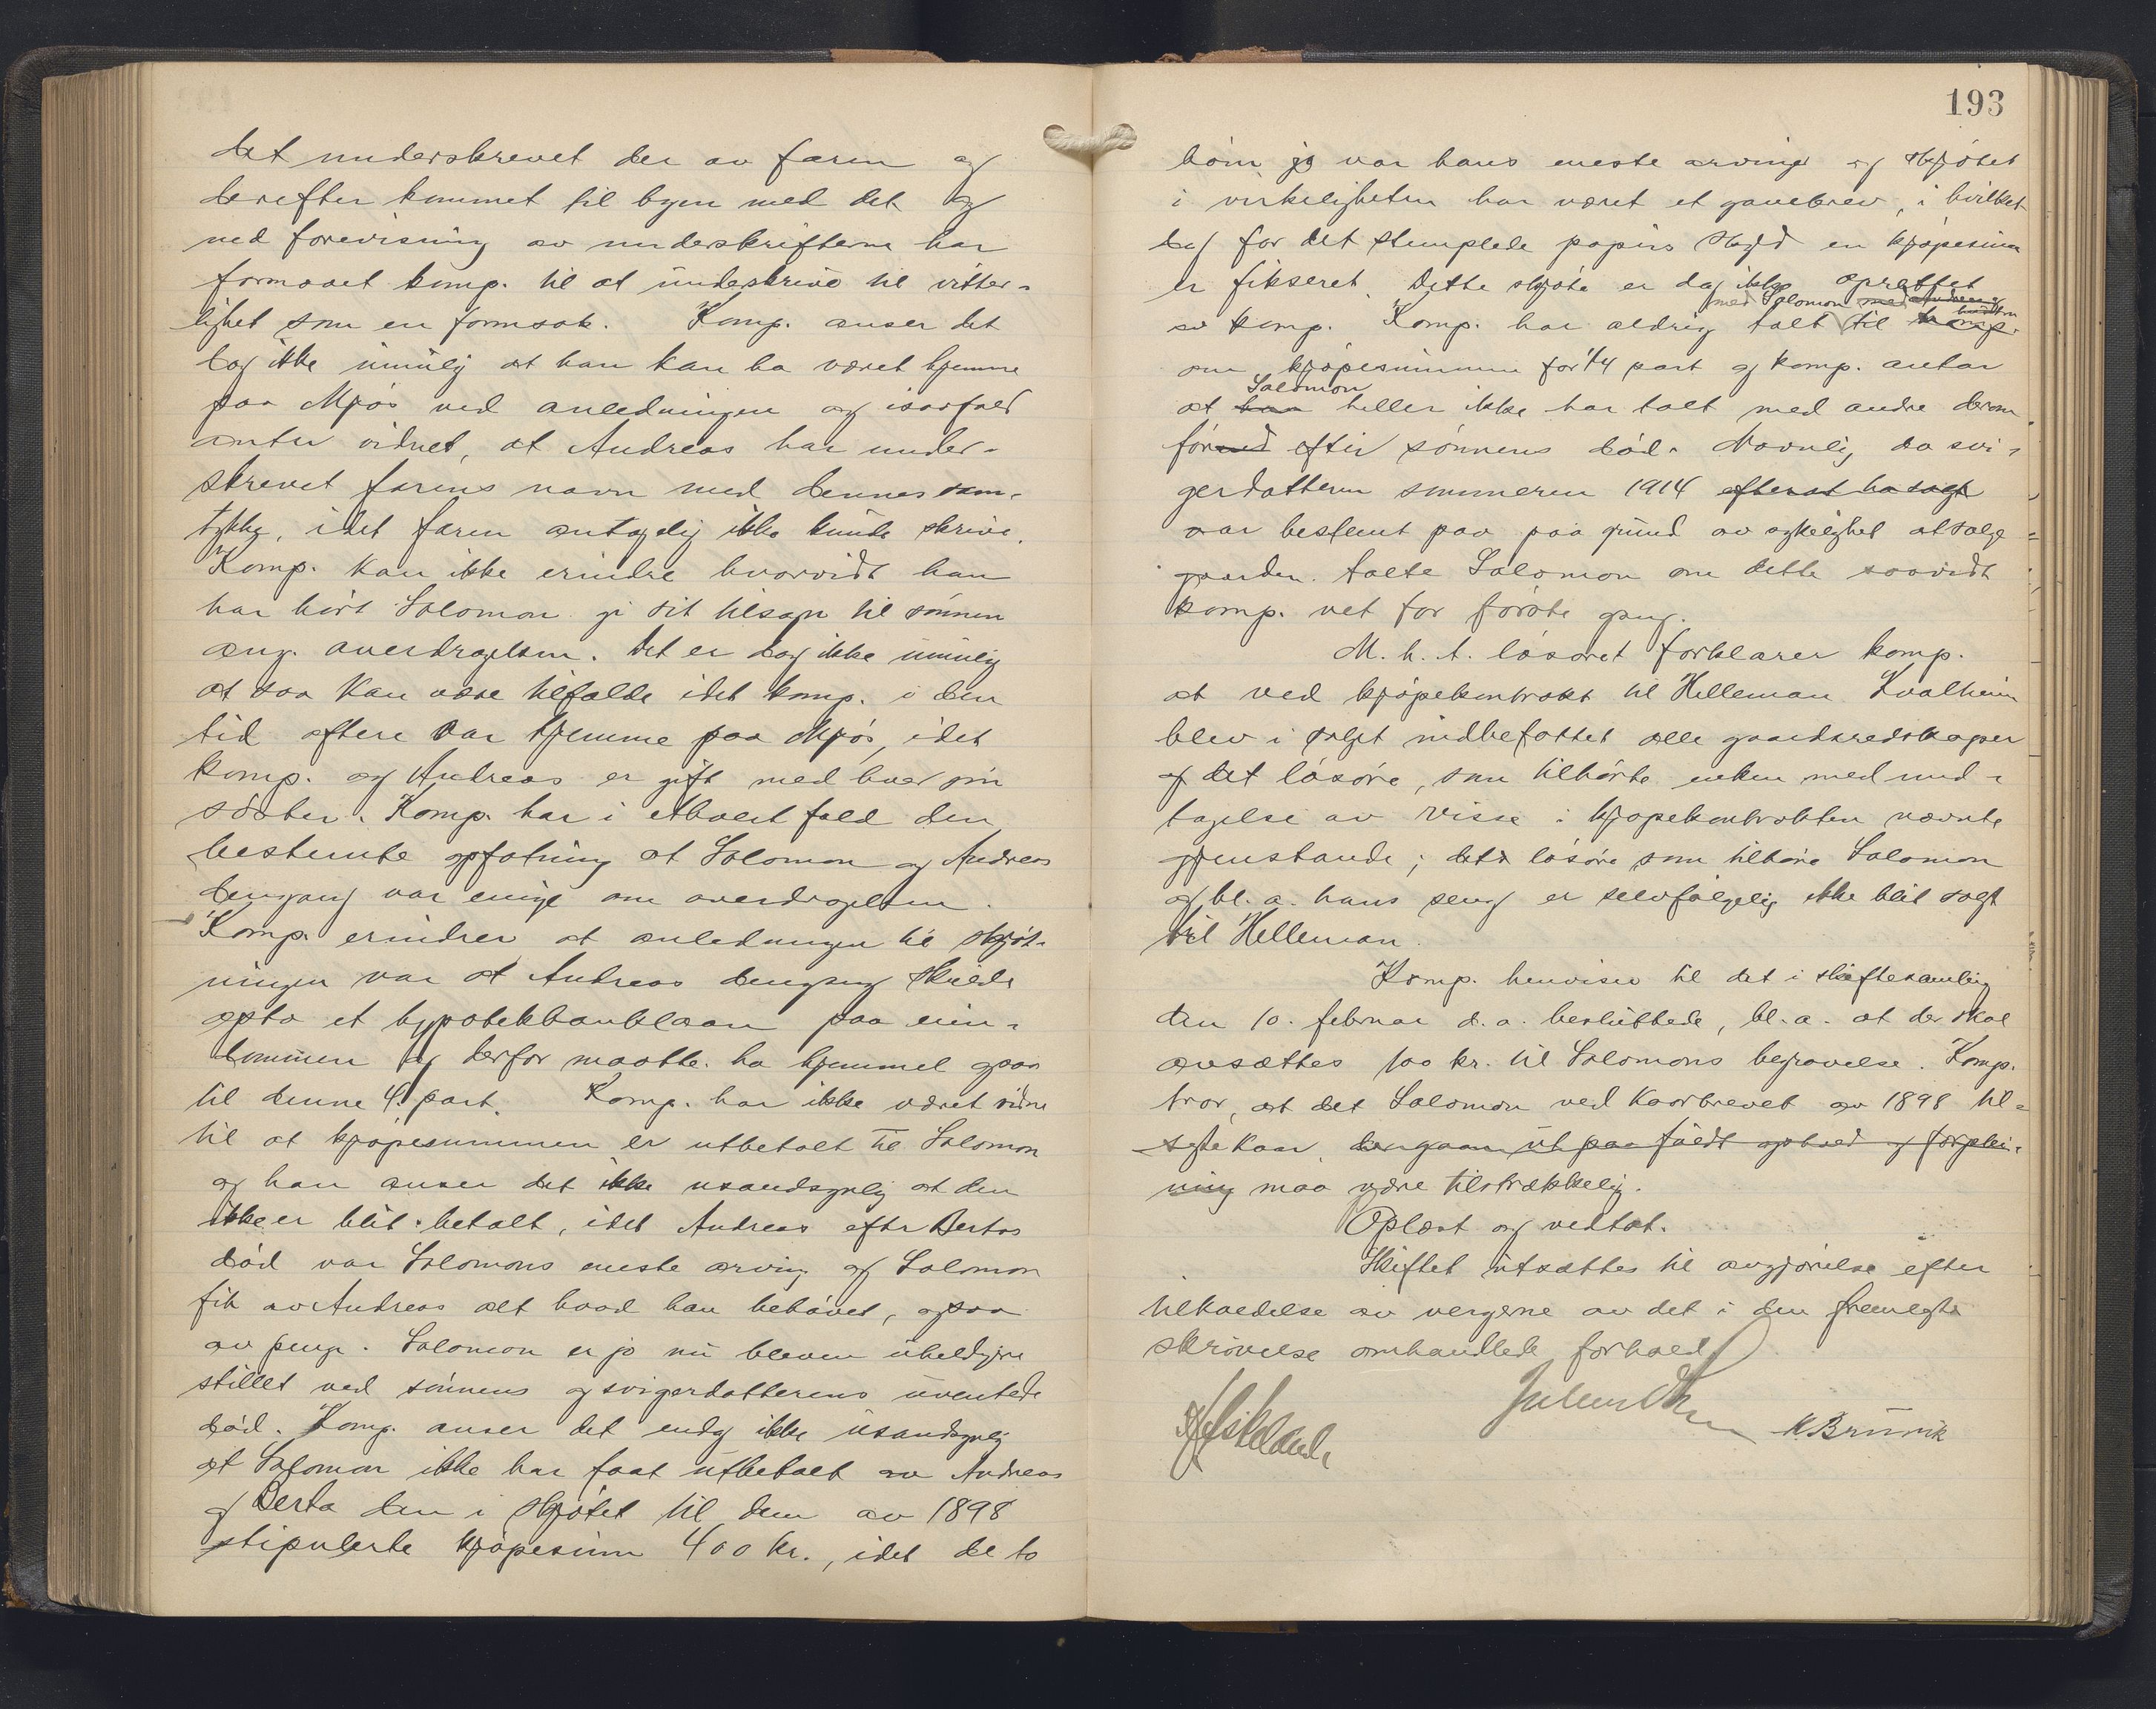 det underskrevet der av faren og
derefter kommet til byen med det og
ved forevisning av underskrifterne har
formaaet komp. til at underskrive til vitter-
lighet som en formsak. Komp. anser det
dog ikke umulig at han kan ha været hjemme
paa Mjøs ved anledningen og isaafald
antar vidnet, at Andreas har under-
skrevet farens navn med dennes sam-
tykke, idet faren antagelig ikke kunde skrive.
Komp. kan ikke erindre hvorvidt han
har hørt Salomon gi sit tilsagn til sønnen
ang. averdragelsen. Det er dog ikke umulig
at saa kan være tilfælde idet komp. i den
tid oftere var hjemme paa Mjøs, idet
komp. og Andreas er gift med hver sin
søster. Komp. har i ethvert fald den
bestemte opfatning at Salomon og Andreas
dengang var enige om averdragelsen.
Komp. erindrer at anledningen til skjøt-
ningen var at Andreas dengang skulde
opta et hypotekbanklaan paa eien-
dommen og derfor maatte ha hjemmel ogsaa
til denne 4. part. Komp. har ikke været vidne
til at kjøpesummen er utbetalt til Salomon
og han anser det ikke usandsynlig at den
ikke er blit betalt, idet Andreas efter Bertas
død var Salomons eneste arving og Salomon
fik av Andreas alt hvad han behøvet, ogsaa
av penge. Salomon er jo nu bleven uheldigere
stillet ved sønnens og svigerdatterens uventede
død. Komp. anser det endog ikke usandsynlig
at Salomon ikke har faat utbetalt av Andreas
og Berta den i skjøtet til dem av 1898
stipulerte kjøpesum 400 kr., idet de to
193
børn jo var hans eneste arvinger og skjøtet
i virkeligheten har været et gavebrev, i hvilket
dog for det stemplede papirs skyld en kjøpesum
er fikseret. Dette skjøte er dog ikke oprettet
med Salomon med Andreas og
av komp. Komp. har aldrig talt til komp.
om kjøpesummen for 1/4 part og komp. antar
Salomon
at han heller ikke har talt med andre derom
førend efter sønnens død. Navnlig da svi-
gerdatteren sommeren 1914 efter at ha solgt
var bestemt paa paa grund av sykelighet at sælge
gaarden. talte Salomon om dette saavidt
komp. vet for første gang.
M. h. t. løsøret forklarer komp.
at ved kjøpekontrakt til Helleman Kvalheim
blev i salget indbefattet alle gaardsredskaper
og det løsøre, som tilhørte enken med und-
tagelse av visse i kjøpekontrakten nævnte
gjenstande; det løsøre som tilhøre Salomon
og bl. a. hans seng er selvfølgelig ikke blit solgt
til Helleman.
Komp. henviser til det i skiftesamling
den 10. februar d. a. besluttede, bl. a. at der skal
avsættes 100 kr. til Salomons begravelse. Komp.
tror, at det Salomon ved kaarbrevet av 1898 til-
sagte kaar, der gaar ut paa fuldt ophold og forplei-
ning maa være tilstrækkelig.
Oplæst og vedtat.
Skiftet utsættes til avgjørelse efter
tilkaldelse av vergerne av det i den fremlagte
skrivelse omhandlede forhold.
K Brunvik